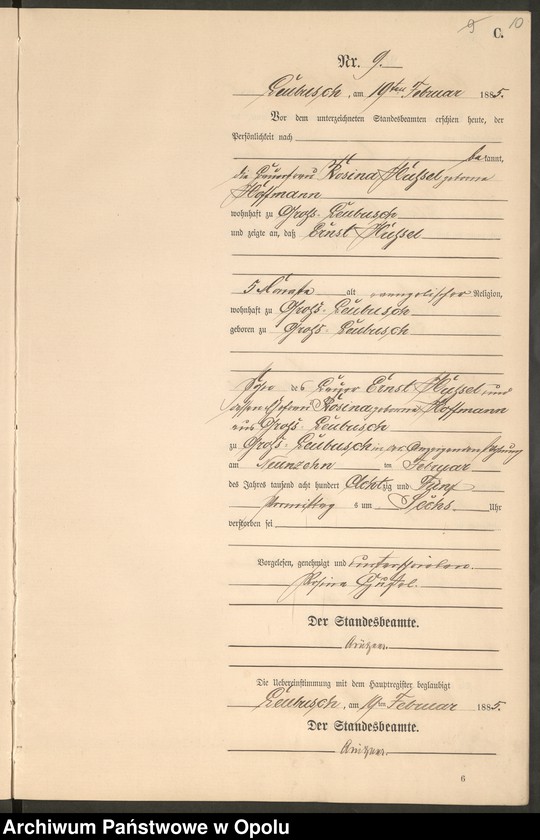 9 10
C.
Nr. 9.
Leubusch, am 19ten Februar 1885.
Vor dem unterzeichneten Standesbeamten erschien heute, der
Persönlichkeit nach
bekannt,
die Bauerfrau Rosina Hussel geborne
Hoffmann
wohnhaft zu Groß-Leubusch
und zeigte an, daß Ernst Hussel
5 Monate alt evangelischer Religion,
wohnhaft zu Groß-Leubusch
geboren zu Groß-Leubusch
Sohn des Bauer Ernst Hussel und
dessen Ehefrau Rosina geborne Hoffmann
aus Groß-Leubusch
zu Groß-Leubusch in der Anzeigenden Wohnung
am Neunzehn ten Februar
des Jahres tausend acht hundert Achtzig und Fünf
Vormittag s um Sechs Uhr
verstorben sei
Vorgelesen, genehmigt und unterschrieben.
Rosina
Der Standesbeamte.
Die Uebereinstimmung mit dem Hauptregister beglaubigt
Leubusch, am 19ten Februar 1885.
Der Standesbeamte.
6
Archiwum Państwowe w Opolu